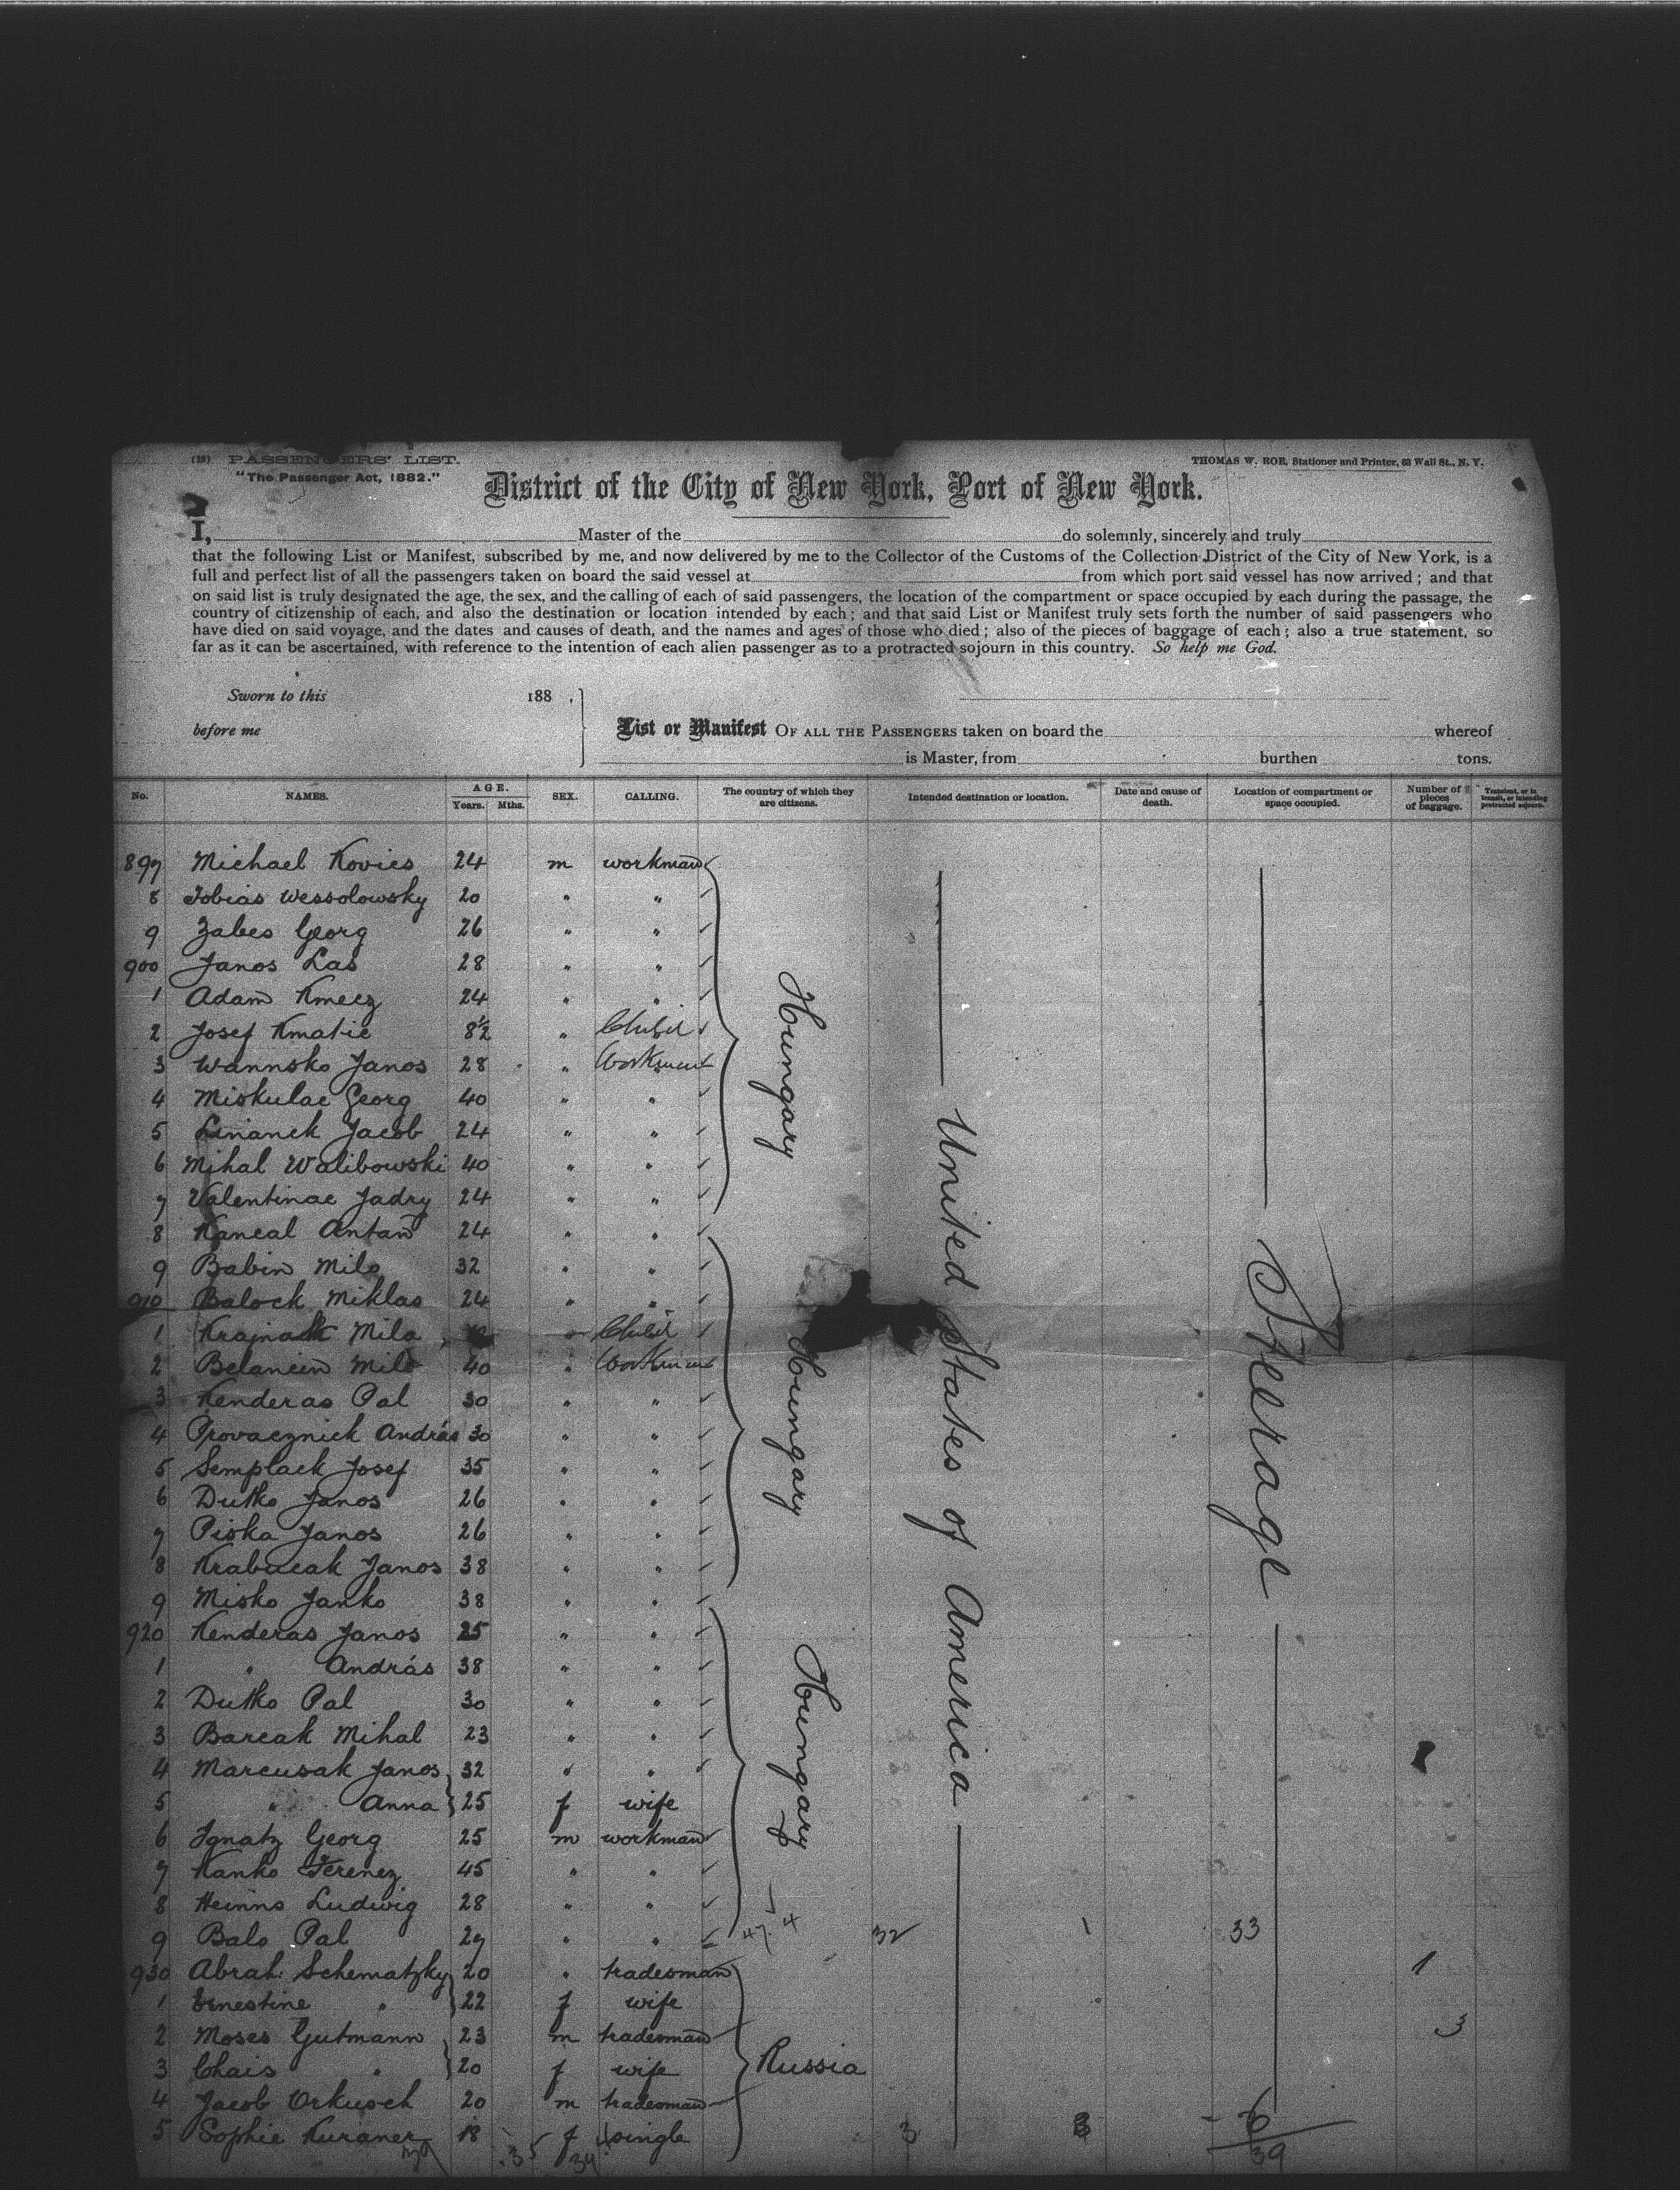 (18) PASSENGERS' LIST.
"The Passenger Act, 1882."
THOMAS W. ROE, Stationer and Printer, 63 Wall St., N. Y.
District of the City of New York, Port of New York.
I, Master of the do solemnly, sincerely and truly
that the following List or Manifest, subscribed by me, and now delivered by me to the Collector of the Customs of the Collection District of the City of New York, is a
full and perfect list of all the passengers taken on board the said vessel at from which port said vessel has now arrived ; and that
on said list is truly designated the age, the sex, and the calling of each of said passengers, the location of the compartment or space occupied by each during the passage, the
country of citizenship of each, and also the destination or location intended by each ; and that said List or Manifest truly sets forth the number of said passengers who
have died on said voyage, and the dates and causes of death, and the names and ages of those who died ; also of the pieces of baggage of each ; also a true statement, so
far as it can be ascertained, with reference to the intention of each alien passenger as to a protracted sojourn in this country. So help me God.
Sworn to this 188 ,
before me
List or Manifest OF ALL THE PASSENGERS taken on board the whereof
is Master, from burthen tons.
No. NAMES. AGE. Years. Mths. SEX. CALLING. The country of which they are citizens. Intended destination or location. Date and cause of death. Location of compartment or space occupied. Number of pieces of baggage. Transient, or in transit, or intending protracted sojourn.
897 Michael Kovics 24 m workman
8 Tobias Wessolowsky 20 " "
9 Zabes Georg 26 " "
900 Janos Las 28 " "
1 Adam Kmecz 24 " "
2 Josef Kmatic 8½ " Child
3 Wannsko Janos 28 " Workman
4 Miskulac Georg 40 " "
5 Linanek Jacob 24 " "
6 Mihal Walibowski 40 " "
7 Valentinac Jadry 24 " "
8 Kaneal Antan 24 " "
9 Babin Milo 32 " "
910 Balock Miklas 24 " "
1 Krajnack Mila " Child
2 Belancin Milo 40 " Workman
3 Kenderas Pal 30 " "
4 Provacznick András 30 " "
5 Semplack Josef 35 " "
6 Dutko Janos 26 " "
7 Piska Janos 26 " "
8 Krabacak Janos 38 " "
9 Misko Janko 38 " "
920 Kenderas Janos 25 " "
1 " András 38 " "
2 Dutko Pal 30 " "
3 Barcak Mihal 23 " "
4 Marcusak Janos 32 " "
5 " Anna 25 f wife
6 Ignatz Georg 25 m workman
7 Kanko Ferencz 45 " "
8 Heinns Ludwig 28 " "
9 Balo Pal 27 " "
930 Abrah. Schematzky 20 " tradesman
1 Ernestine " 22 f wife
2 Moses Gutmann 23 m tradesman
3 Chais " 20 f wife
4 Jacob Orkusch 20 m tradesman
5 Sophie Kuraner 18 f single
Hungary
Hungary
Hungary
Russia
United States of America
Steerage
32 1 33
1
3
3 3 6
39